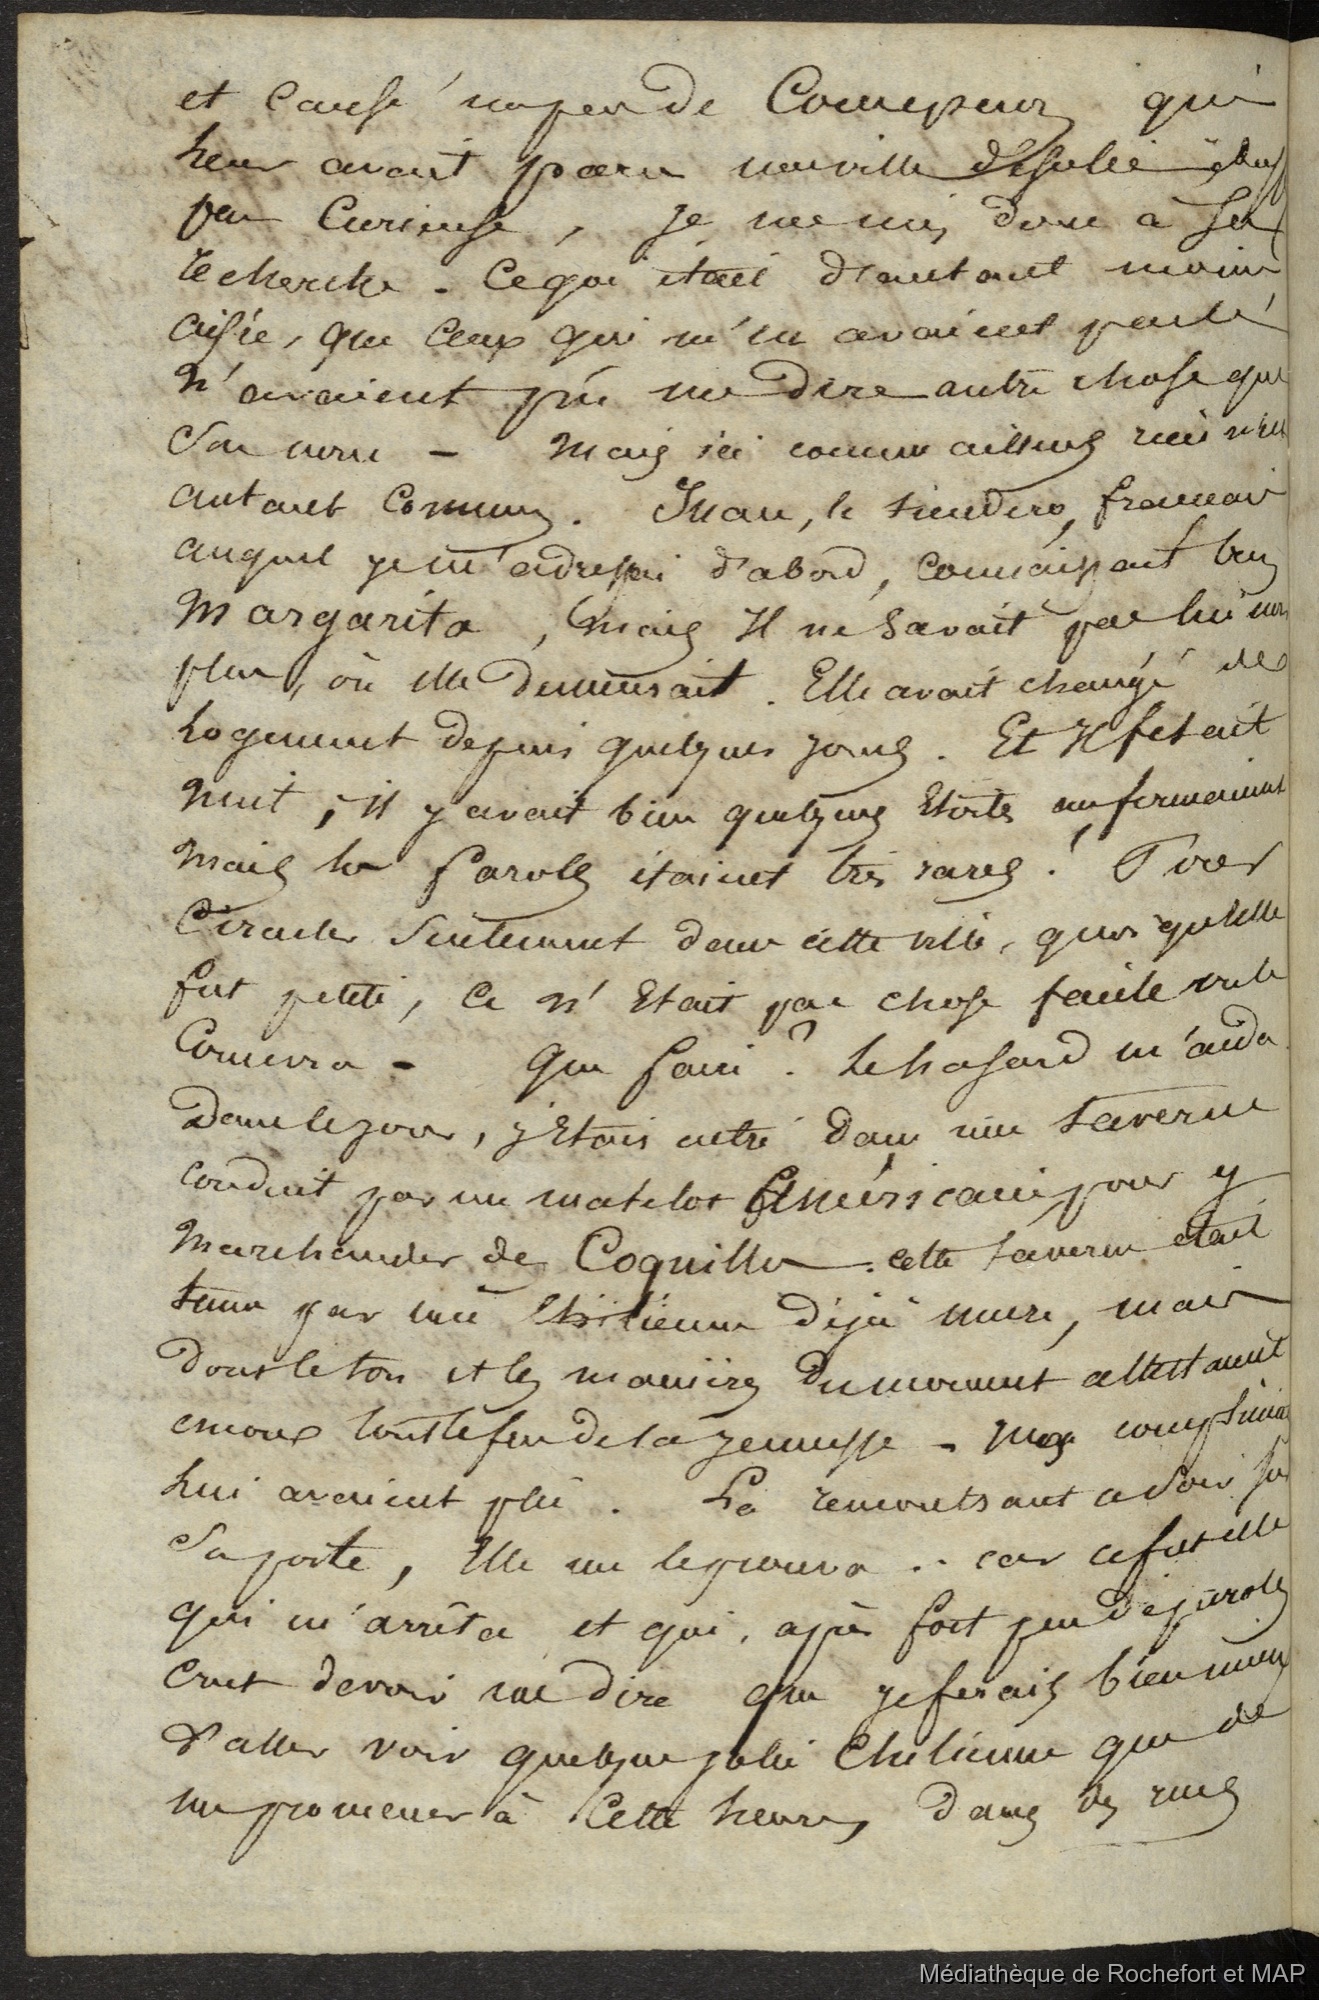 et causé un peu de Concepcion qui
leur avait paru une ville désolée et
peu Curieuse, je me mis donc à sa
recherche. Ce qui était d'autant moins
aisée, que ceux qui m'en avaient parlé
n'avaient pû me dire autre chose que
son nom - Mais ici comme ailleurs rien n'est
autant Commun. Juan, le tiendero, français
auquel je m'adressai d'abord, connaissait bien
Margarita, mais Il ne savait pas lui non
plus, où elle demeurait. Elle avait changé de
logement depuis quelques jours. Et Il fesait
nuit, il y avait bien quelques Etoiles au firmament
mais les farols étaient très rares. Pour
Circuler seulement dans cette ville, quoiqu'elle
fut petite, ce n'était pas chose facile
- Que faire ? le hasard m'aida
Dans le jour, j'étais entré dans une taverne
conduit par un matelot Américain pour y
Marchander des Coquilles. Cette taverne était
tenue par une Chilienne déjà mure, mais
dont le ton et les manières du moment attestaient
encore tout le feu de la jeunesse - Mes complimens
lui avaient plû. La rencontrant ce soir sur
sa porte, Elle me le prouva .. car ce fut elle
qui m'arrêta et qui, après fort peu de paroles
crut devoir me dire que je ferais bien mieux
d'aller voir quelque jolie Chilienne que de
me promener à Cette heure, dans les rues
Médiathèque de Rochefort et MAP